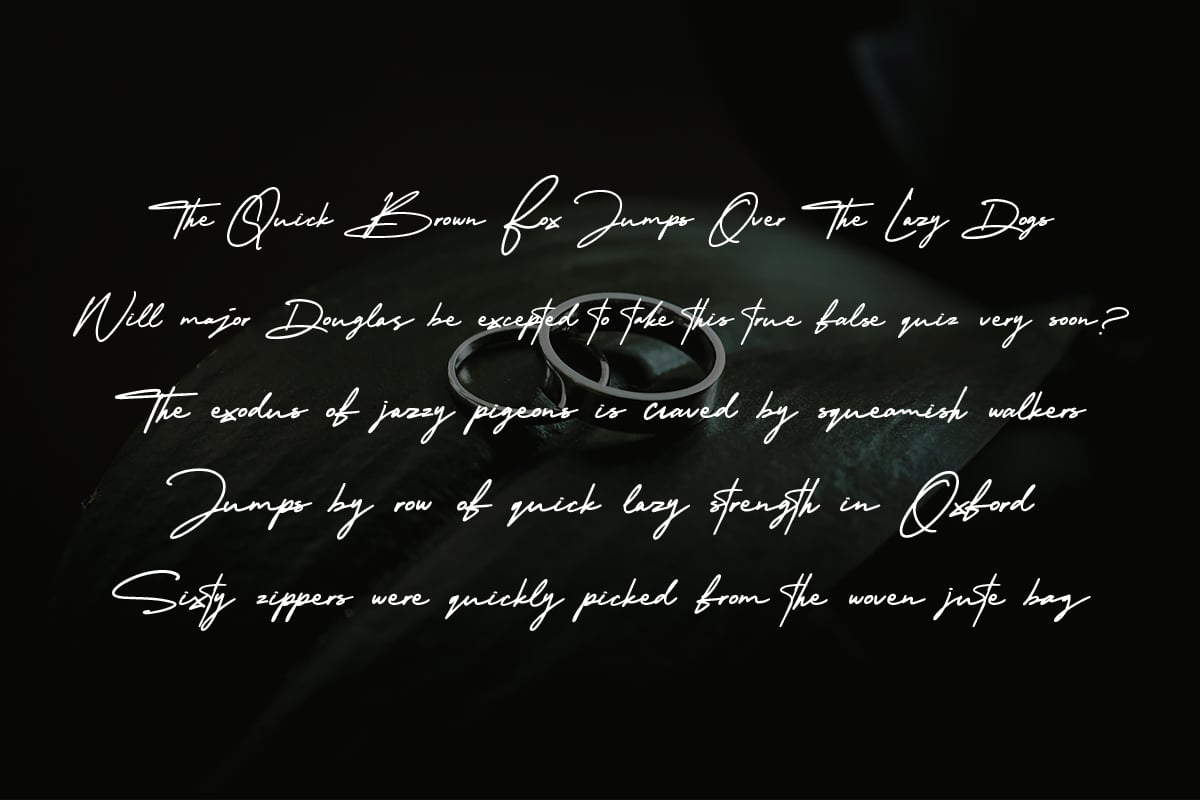 The Quick Brown Fox Jumps Over The Lazy Dogs
Will major Douglas be excepted to take this true false quiz very soon?
The exodus of jazzy pigeons is craved by squeamish walkers
Jumps by row of quick lazy strength in Oxford
Sixty zippers were quickly picked from the woven jute bag